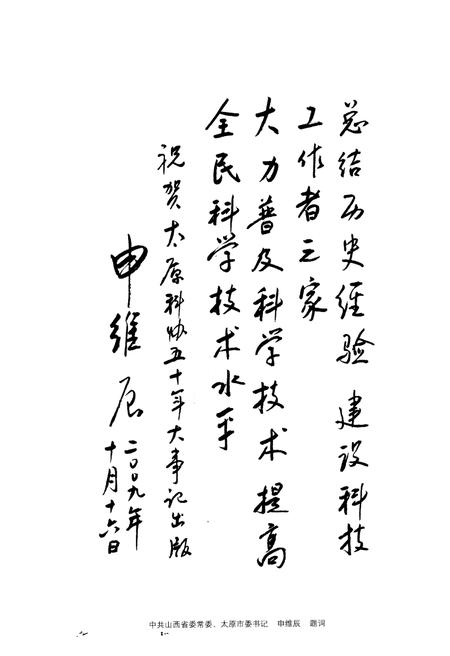 总结历史经验 建设科技
工作者之家
大力普及科学技术 提高
全民科学技术水平
祝贺太原科协五十年大事记出版
申维辰
二〇〇九年
十月十六日
中共山西省委常委、太原市委书记 申维辰 题词